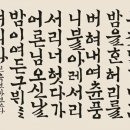 밤을한허리를
버혀내여춘풍
니블아레서리
서리너헛다가
어론님오신날
밤이여든구뷔